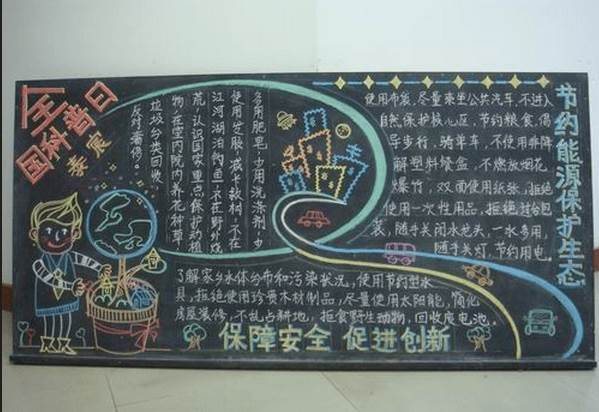 全国科普日
节约能源保护生态
多用肥皂,少用洗涤剂,少
使用芝服,减卡救树,不在
江河湖泊钓鱼,不在野外烧
荒,认识国家重点保护动植
物,在室内院内养花种草,
垃圾分类回收,
反对奢侈。
使用布袋,尽量乘坐公共汽车,不进入
自然保护核心区,节约粮食,倡
导步行,骑单车,不使用非降
解塑料餐盒,不燃放烟花
爆竹,双面使用纸张,拒绝
使用一次性用品,拒绝过份包
装,随手关闭水龙头,一水多用,
随手关灯,节约用电。
了解家乡水体分布和污染状况,使用节约型水
具,拒绝使用珍贵木材制品,尽量使用太阳能,简化
房屋装修,不乱占耕地,拒食野生动物,回收废电池。
保障安全 促进创新